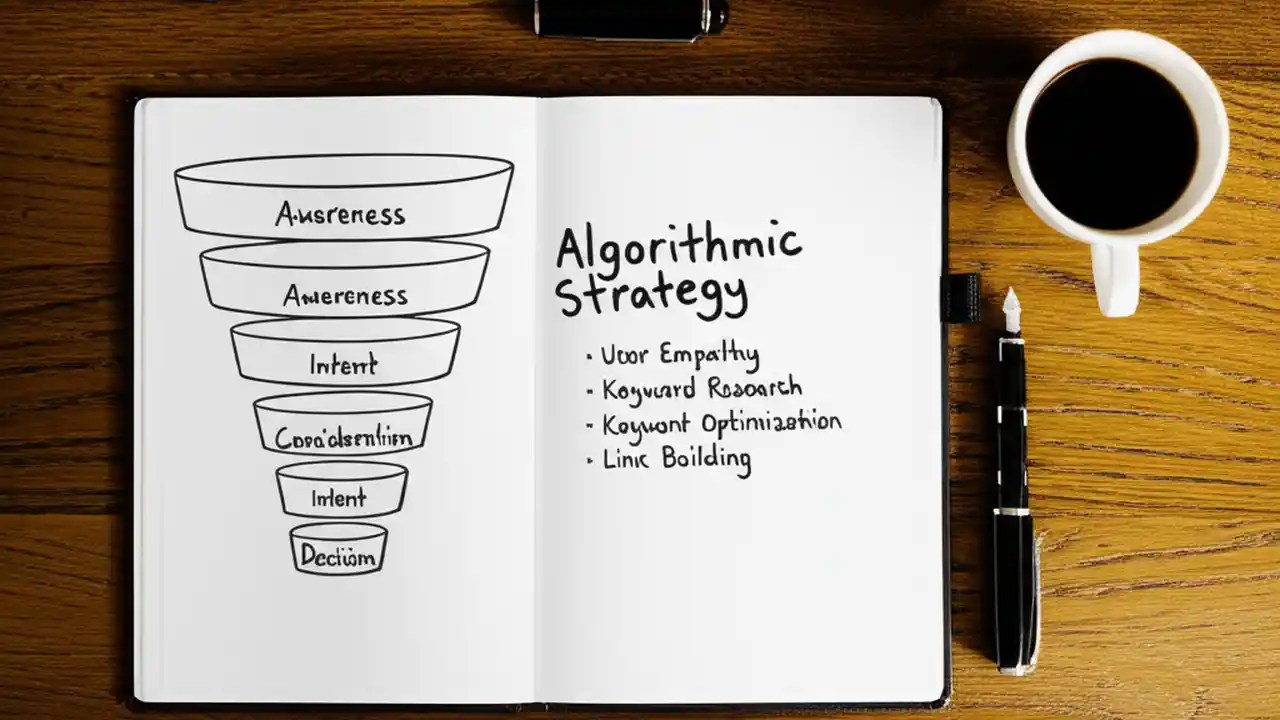 Awareness
Awareness
Intent
Consideration
Intent
Decision
Algorithmic
Strategy
· Uoor Empathy
· Keyword Research
· Keywort Optimization
· Linc Building